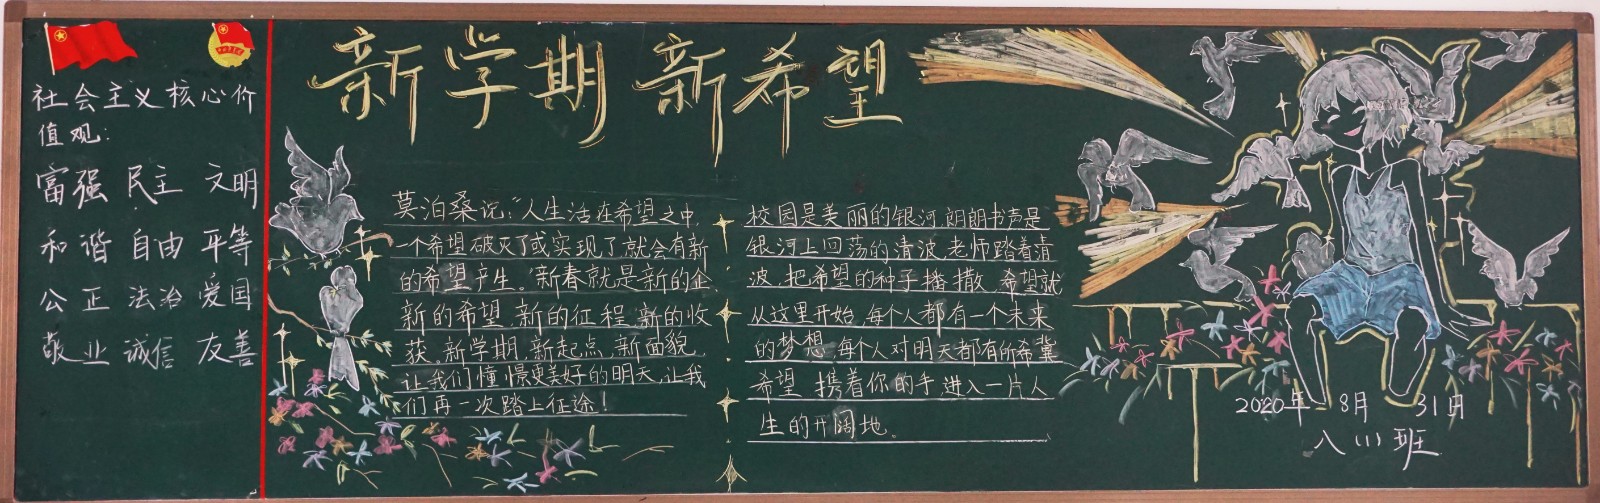 社会主义核心价
值观：
富强 民主 文明
和谐 自由 平等
公正 法治 爱国
敬业 诚信 友善
新学期 新希望
莫泊桑说："人生活在希望之中,
一个希望破灭了或实现了就会有新
的希望产生。"新春就是新的企,
新的希望,新的征程,新的收
获。新学期,新起点,新面貌,
让我们憧憬更美好的明天,让我
们再一次踏上征途!
校园是美丽的银河,朗朗书声是
银河上回荡的清波,老师踏着清
波,把希望的种子播撒,希望就
从这里开始,每个人都有一个未来
的梦想,每个人对明天都有所希冀
希望,携着你的手,进入一片人
生的开阔地。
2020年 8月 31日
八(1)班